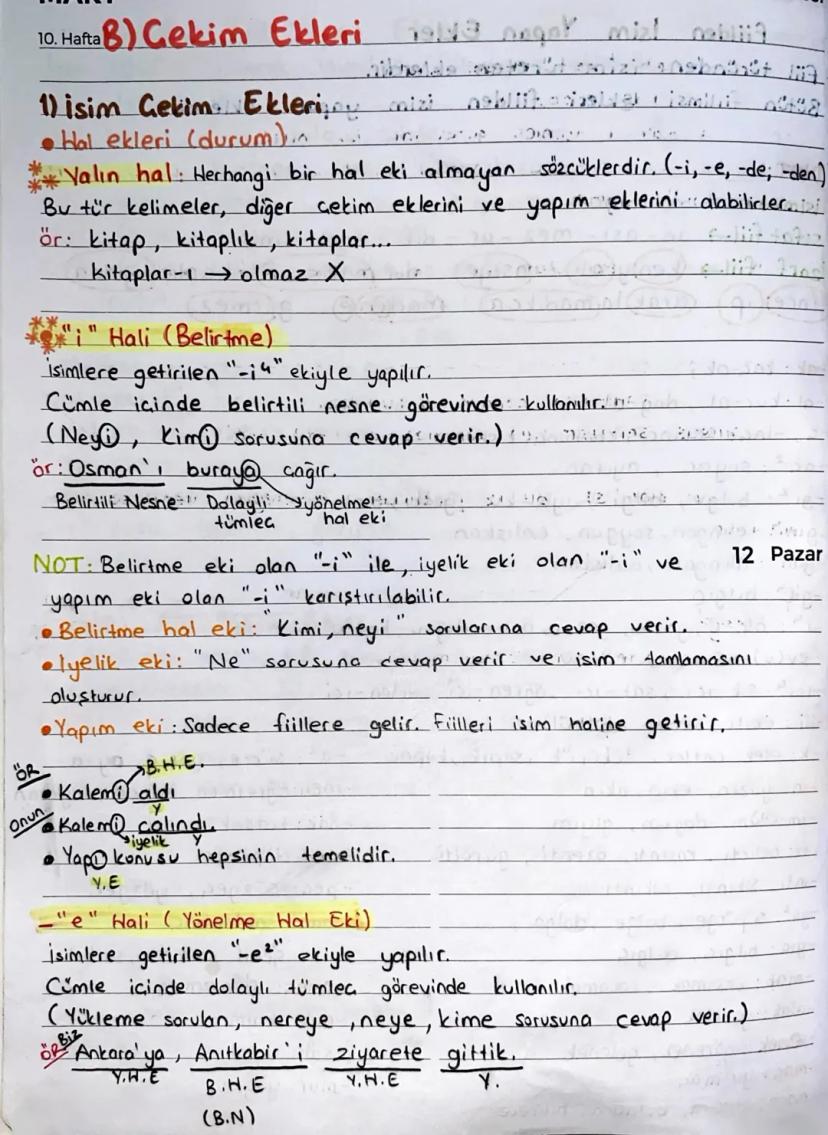 10. Hafta B) Çekim Ekleri
1) İsim Çekim Ekleri
• Hal ekleri (durum)
Yalın hal: Herhangi bir hal eki almayan sözcüklerdir. (-i, -e, -de, -den)
Bu tür kelimeler, diğer çekim eklerini ve yapım eklerini alabilirler.
ör: kitap, kitaplık, kitaplar...
kitaplar-ı → olmaz X
"i" Hali (Belirtme)
İsimlere getirilen "-i⁴" ekiyle yapılır.
Cümle içinde belirtili nesne görevinde kullanılır.
(Neyi, Kimi sorusuna cevap verir.)
ör: Osman'ı buraya çağır.
Belirtili Nesne Dolaylı yönelme
tümleç hal eki
12 Pazar
NOT: Belirtme eki olan "-i" ile, iyelik eki olan "-i" ve
yapım eki olan "-i" karıştırılabilir.
• Belirtme hal eki: "Kimi, neyi" sorularına cevap verir.
• İyelik eki: "Ne" sorusuna cevap verir ve isim tamlamasını
oluşturur.
• Yapım eki: Sadece fiillere gelir. Fiilleri isim haline getirir.
ÖR B.H.E.
• Kalemi aldı
Y
Onun • Kalemi çalındı.
iyelik Y
• Yapı konusu hepsinin temelidir.
Y.E
-"e" Hali (Yönelme Hal Eki)
İsimlere getirilen "-e²" ekiyle yapılır.
Cümle içinde dolaylı tümleç görevinde kullanılır.
(Yükleme sorulan, nereye, neye, kime sorusuna cevap verir.)
ÖR Biz Ankara'ya, Anıtkabir'i ziyarete gittik.
Y.H.E B.H.E Y.H.E Y.
(B.N)